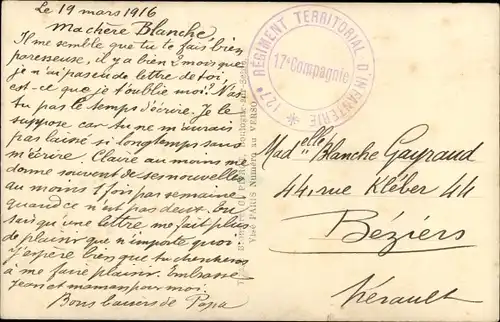 Le 19 mars 1916
Ma chère Blanche,
Il me semble que tu te fais bien
paresseuse, il y a bien 3 mois que
je n'ai pas eu de lettre de toi,
est-ce que je t'oublie moi? N'as
tu pas le temps d'écrire. Je le
suppose car tu ne m'aurais
pas laissé si longtemps sans
m'écrire. Claire au moins me
donne souvent de ses nouvelles
au moins 1 fois par semaine
quand ce n'est pas deux. Tu
sais qu'une lettre me fait plus
de plaisir que n'importe quoi
j'espère bien que tu chercheras
à me faire plaisir. Embrasse
Jean et maman pour moi.
Bons baisers de Papa
127e RÉGIMENT TERRITORIAL D'INFANTERIE *
17e Compagnie
PARIS Numéro au VERSO
Madelle Blanche Gayraud
44, rue Kléber 44
Béziers
Hérault